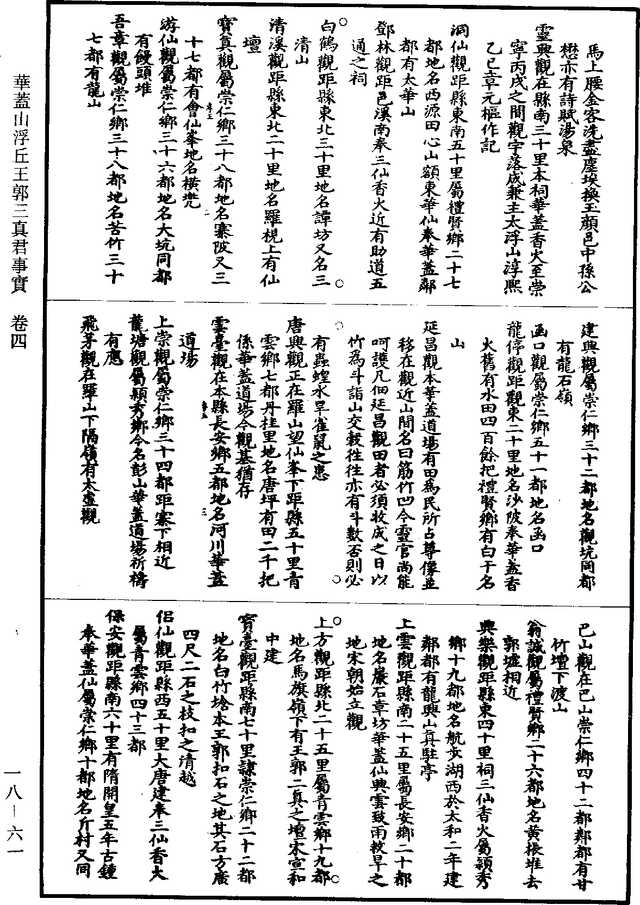 華蓋山浮丘王郭三真君事實 卷四
馬上腰金客洗盡塵埃換玉顏邑中孫公
懋亦有詩賦湯泉
靈興觀在縣南三十里本祠華蓋香火至崇
寧丙戌之間觀宇落成兼主太浮山淳熙
乙巳章元樞作記
洞仙觀距縣東南五十里屬禮賢鄉二十七
都地名西源田心山額東華仙奉華蓋鄰
都有太華山
鄧林觀距邑溪南奉三仙香火近有助道五
通之祠
白鶴觀距縣東北三十里地名譚坊又名三
清山
清溪觀距縣東北二十里地名羅梘上有仙
壇
寶真觀屬崇仁鄉三十八都地名寨陂又三
十七都有會仙峯地名橫㙱
游仙觀屬崇仁鄉三十六都地名大坑同都
有饅頭堆
吾章觀屬崇仁鄉三十八都地名苦竹三十
七都有龍山
建興觀屬崇仁鄉三十二都地名觀坑同都
有龍石嶺
函口觀屬崇仁鄉五十一都地名函口
龍停觀距觀東二十里地名沙陂奉華蓋香
火舊有水田四百餘把禮賢鄉有白于名
山
延昌觀本華蓋道場有田為民所占尊像並
移在觀近山間名曰筋竹凹今靈官尚能
呵護凡佃延昌觀田者必須收成之日以
竹為斗詣山交穀往往亦有斗數否則必
有蟲蝗水旱雀鼠之患
唐興觀正在羅山望仙峯下距縣五十里青
雲鄉七都丹桂里地名唐坪有田二千把
係華蓋道場今觀基猶存
雲臺觀在本縣長安鄉五都地名河川華蓋
道場
上崇觀屬崇仁鄉三十四都距寨下相近
龍塘觀屬潁秀鄉今名彭山華蓋道場祈禱
有應
飛茅觀在羅山下隔嶺有太虛觀
巴山觀在巴山崇仁鄉四十二都鄰都有甘
竹壇下渡山
翁誠觀屬禮賢鄉二十六都地名黃掖堆去
郭墟相近
興樂觀距縣東四十里祠三仙香火屬潁秀
鄉十九都地名航步湖西於太和二年建
鄰都有龍興山真駐亭
上雲觀距縣南二十五里屬長安鄉二十都
地名巖石章坊華蓋仙興雲致雨救旱之
地宋朝始立觀
上方觀距縣北二十五里屬青雲鄉十九都
地名馬旗嶺下有王郭二真之壇宋宣和
中建
寶臺觀距縣南七十里隸崇仁鄉二十二都
地名白竹垮本王郭扣石之地其石方廣
四尺二石之枝扣之清越
侶仙觀距縣西五十里大唐建奉三仙香火
屬青雲鄉四十三都
保安觀距縣南六十里有隋開皇五年古鍾
奉華蓋仙屬崇仁鄉十都地名斤村又同
一八－六一